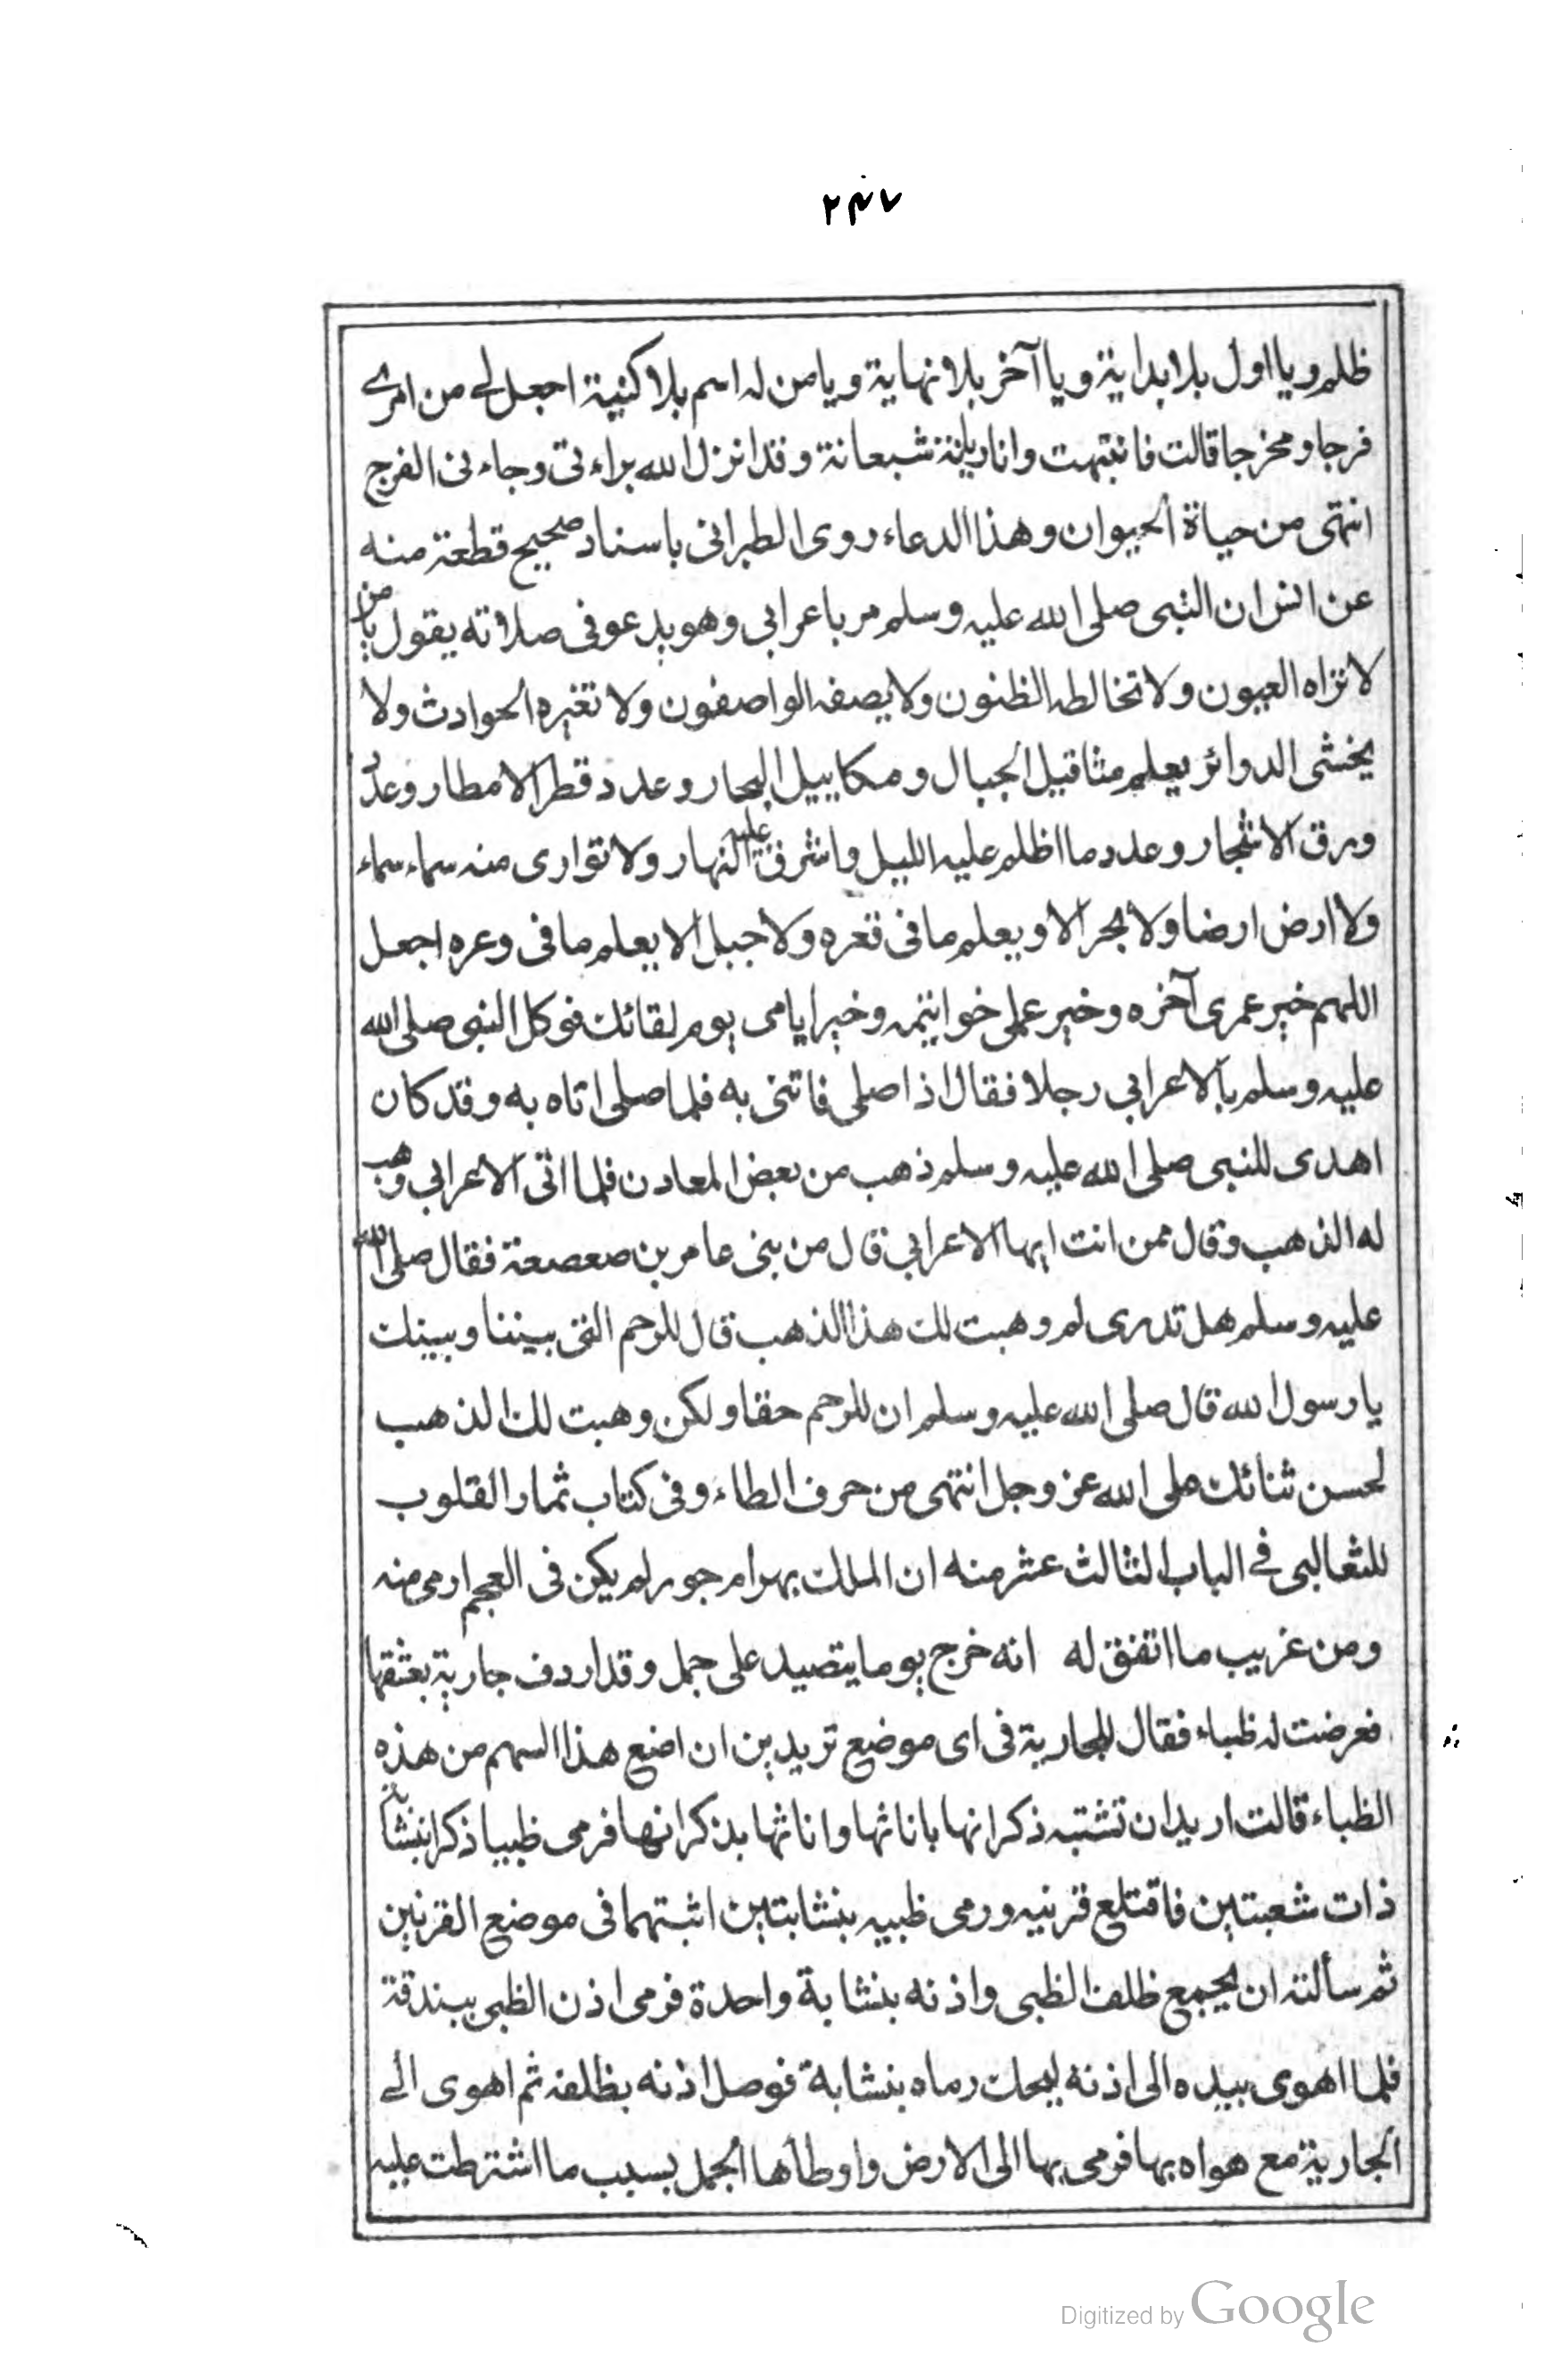 ٢٤٧
ظلم ويا اول بلا بداية ويا آخر بلا نهاية ويا من له اسم بلا كنية اجعل لي من امري
فرجا ومخرجا قالت فانتبهت وانا ريانة شبعانة وقد انزل الله براءتي وجاءني الفرج
انتهى من حياة الحيوان وهذا الدعاء روى الطبرانى باسناد صحيح قطعة منه
عن انس ان النبى صلى الله عليه وسلم مر باعرابى وهو يدعو فى صلاته يقول يا من
لا تراه العيون ولا تخالطه الظنون ولا يصفه الواصفون ولا تغيره الحوادث ولا
يخشى الدوائر يعلم مثاقيل الجبال ومكاييل البحار وعدد قطر الامطار وعدد
ورق الاشجار وعدد ما اظلم عليه الليل واشرق عليه النهار ولا توارى منه سماء سماء
ولا ارض ارضا ولا بحر الا ويعلم ما فى قعره ولا جبل الا يعلم ما فى وعره اجعل
اللهم خير عمرى آخره وخير عملى خواتيمه وخير ايامى يوم لقائك فوكل النبى صلى الله
عليه وسلم بالاعرابى رجلا فقال اذا صلى فاتنى به فلما صلى اتاه به وقد كان
اهدى للنبى صلى الله عليه وسلم ذهب من بعض المعادن فلما اتى الاعرابى وهب
له الذهب وقال ممن انت ايها الاعرابى قال من بنى عامر بن صعصعة فقال صلى الله
عليه وسلم هل تدرى لم وهبت لك هذا الذهب قال للرحم التى بيننا وبينك
يا رسول الله قال صلى الله عليه وسلم ان للرحم حقا ولكن وهبت لك الذهب
لحسن ثنائك على الله عز وجل انتهى من حرف الطاء وفى كتاب ثمار القلوب
للثعالبى فى الباب الثالث عشر منه ان الملك بهرام جور لم يكن فى العجم ارمى منه
ومن غريب ما اتفق له انه خرج يوما يتصيد على جمل وقد اردف جارية يعشقها
فعرضت له ظباء فقال للجارية فى اى موضع تريدين ان اضع هذا السهم من هذه
الظباء قالت اريد ان تشتبه ذكرانها باناثها واناثها بذكرانها فرمى ظبيا ذكرا بنشابة
ذات شعبتين فاقتلع قرنيه ورمى ظبيه بنشابتين اثبتهما فى موضع القرنين
ثم سألته ان يجمع ظلف الظبى واذنه بنشابة واحدة فرمى اذن الظبى ببندقة
فلما اهوى بيده الى اذنه ليحك رماه بنشابة فوصل اذنه بظلفه ثم اهوى الى
الجارية مع هواه بها فرمى بها الى الارض واوطأها الجمل بسبب ما اشترطت عليه
Digitized by Google